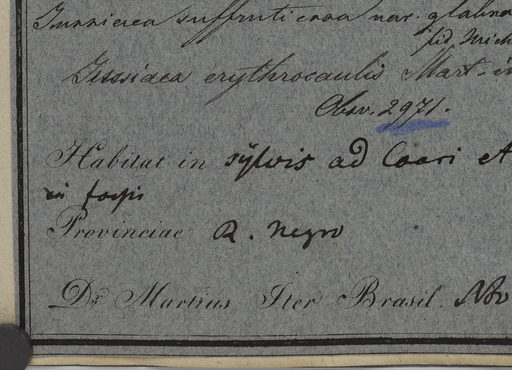 Jussiaea suffruticosa var. glabra
fid. Mich
Jussiaea erythrocaulis Mart. in
Obsv. 2971.
Habitat in sylvis ad Coari et
in
Provinciae R. Negro
Dr. Martius Iter Brasil. Nov